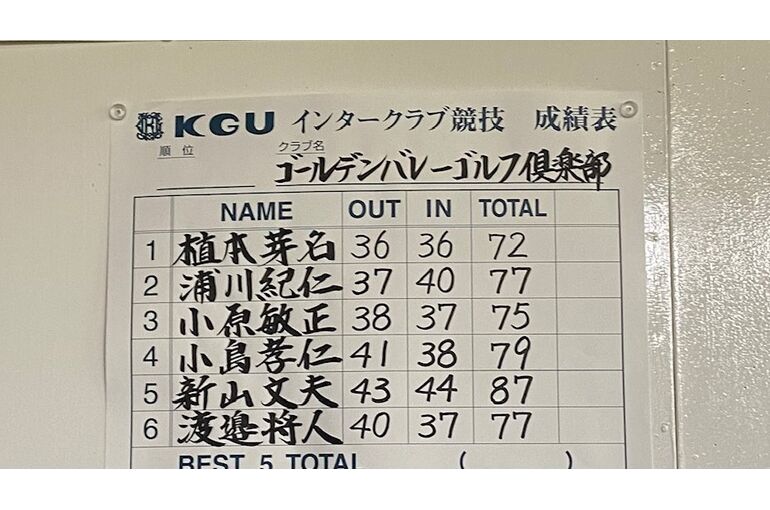 KGU インタークラブ競技 成績表
順位 クラブ名
ゴールデンバレーゴルフ倶楽部
NAME OUT IN TOTAL
1 植本芽名 36 36 72
2 浦川紀仁 37 40 77
3 小原敏正 38 37 75
4 小島孝仁 41 38 79
5 新山文夫 43 44 87
6 渡邉将人 40 37 77
BEST 5 TOTAL ( )